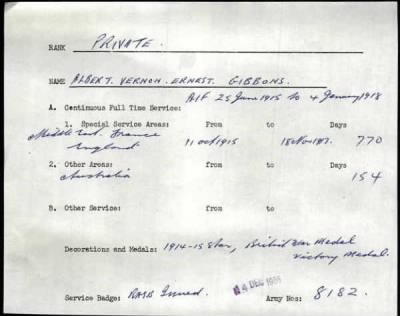 RANK PRIVATE.
NAME ALBERT. VERNON. ERNEST. GIBBONS.
AIF 25 June 1915 to 4 January 1918
A. Continuous Full Time Service:
1. Special Service Areas: From to Days
Middle East. France
England 11 Oct 1915 18 Nov 1917. 770
2. Other Areas: From to Days
Australia 154
B. Other Service: From to
Decorations and Medals: 1914-15 Star, British War Medal
Victory Medal.
Service Badge: RASB Issued. 14 DEC Army Nos: 8182.